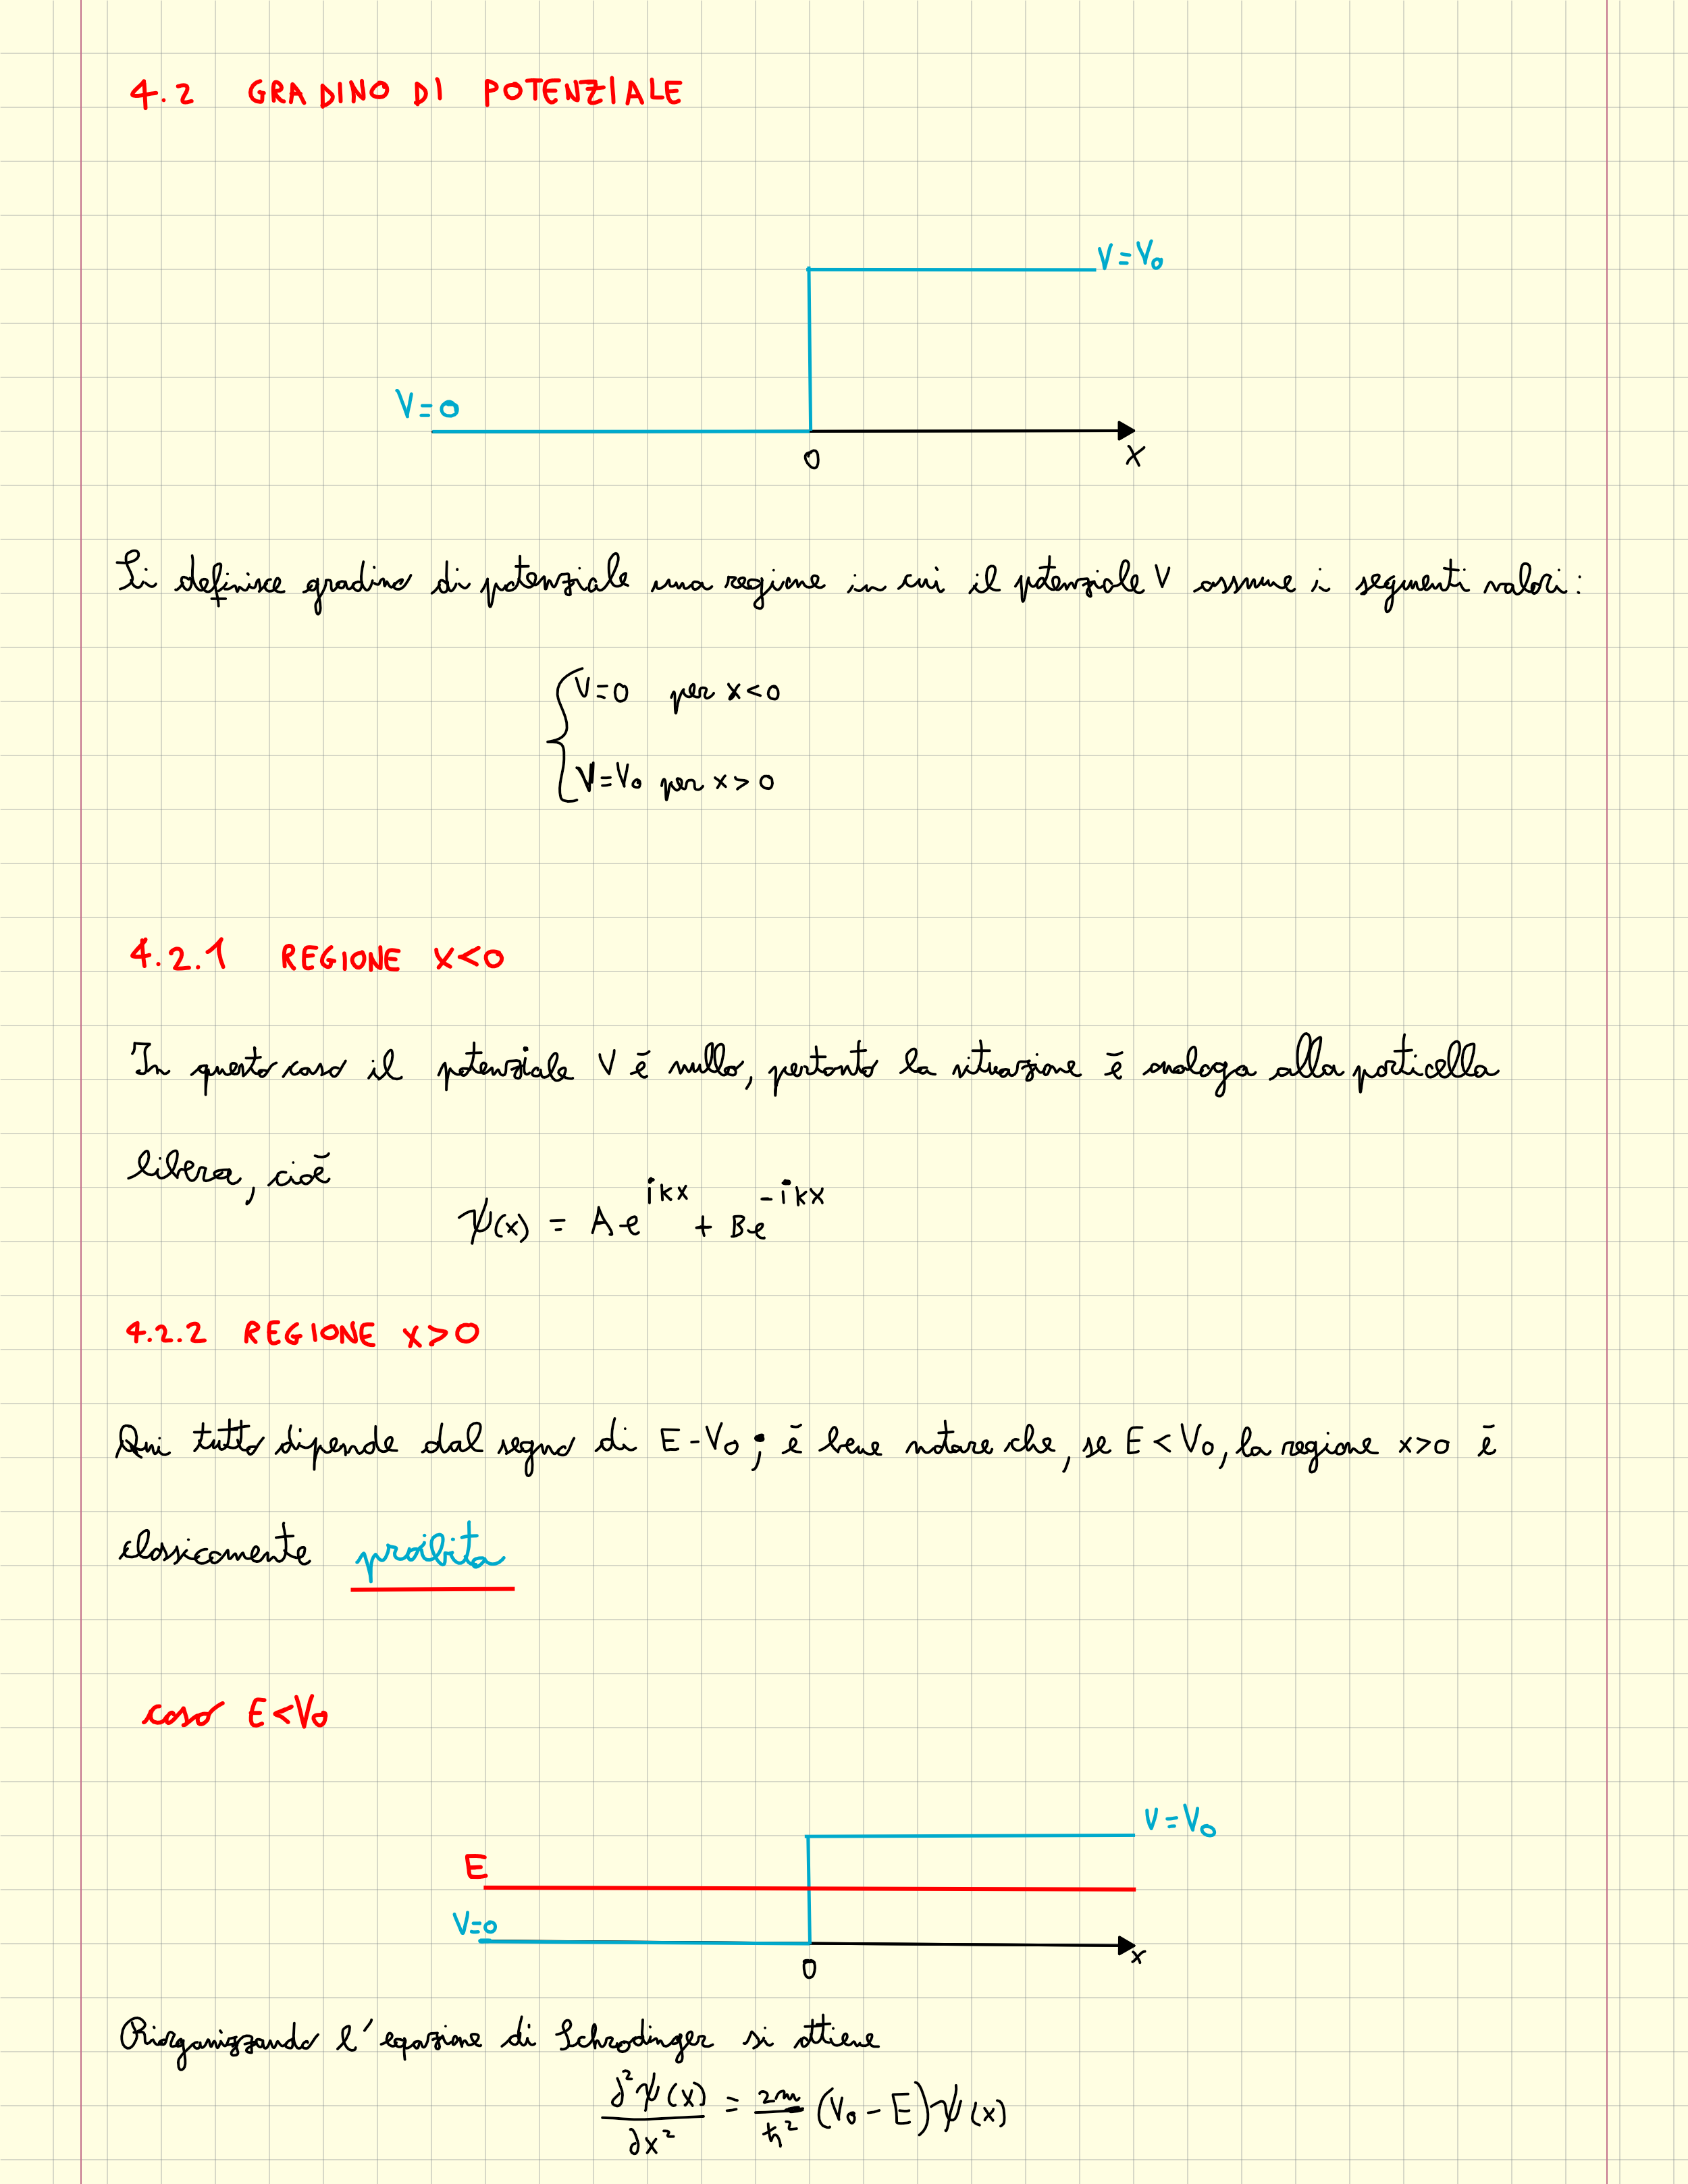 4.2 GRADINO DI POTENZIALE
V=V₀
V=0
0
x
Si definisce gradino di potenziale una regione in cui il potenziale V assume i seguenti valori:
V=0 per x<0
V=V₀ per x>0
4.2.1 REGIONE X<0
In questo caso il potenziale V ē nullo, pertanto la situazione ē analoga alla particella
libera, cioē
ψ(x) = Ae^{ikx} + Be^{-ikx}
4.2.2 REGIONE X>0
Qui tutto dipende dal segno di E-V₀; ē bene notare che, se E<V₀, la regione x>0 ē
classicamente proibita
caso E<V₀
V=V₀
E
V=0
0
x
Riorganizzando l'eqazione di Schrodinger si ottiene
∂²ψ(x)/∂x² = 2m/ħ² (V₀-E)ψ(x)